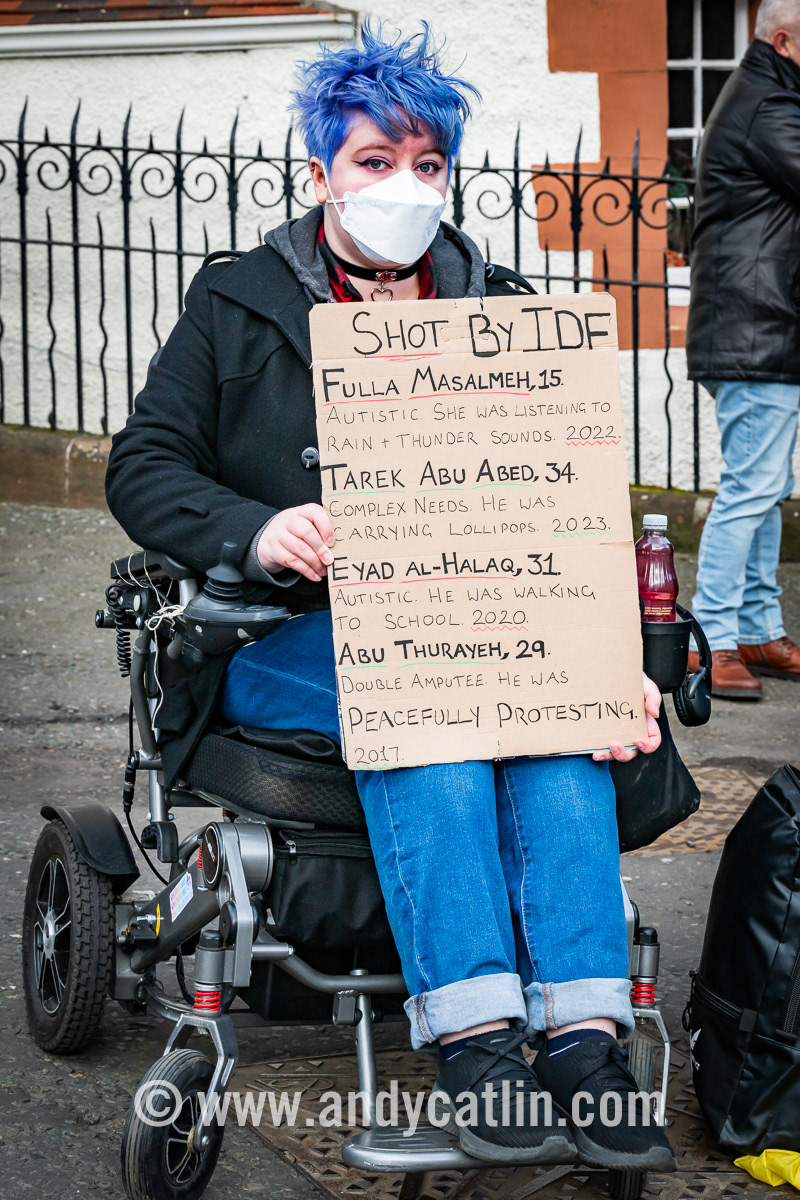 SHOT BY IDF
FULLA MASALMEH, 15.
AUTISTIC. SHE WAS LISTENING TO
RAIN + THUNDER SOUNDS. 2022.
TAREK ABU ABED, 34.
COMPLEX NEEDS. HE WAS
CARRYING LOLLIPOPS. 2023.
EYAD AL-HALAQ, 31.
AUTISTIC. HE WAS WALKING
TO SCHOOL. 2020.
ABU THURAYEH, 29.
DOUBLE AMPUTEE. HE WAS
PEACEFULLY PROTESTING.
2017.
© www.andycatlin.com